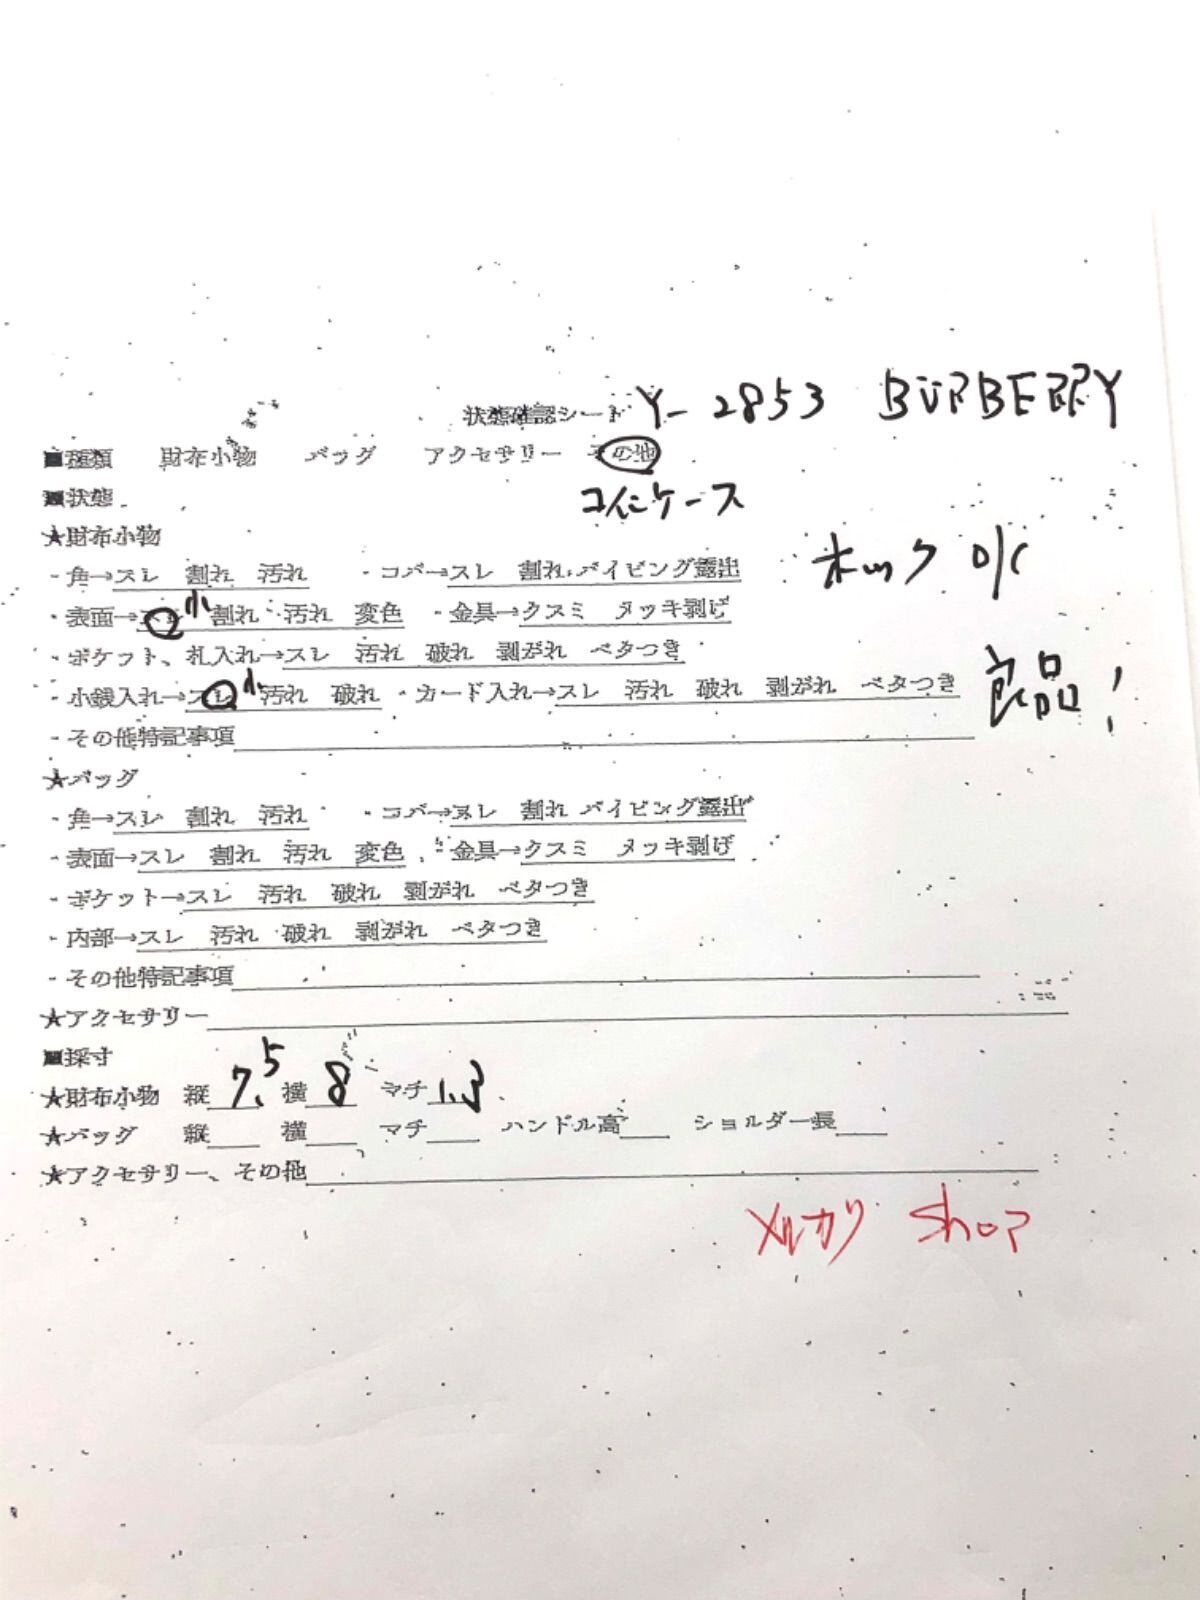 状態確認シート Y-2853 BURBERRY
■種類 財布小物 バッグ アクセサリー その他
■状態 コインケース
★財布小物
・角→スレ 割れ 汚れ ・コバ→スレ 割れ パイピング露出 ホック O/C
・表面→スレ 小 割れ 汚れ 変色 ・金具→クスミ メッキ剥げ
・ポケット、札入れ→スレ 汚れ 破れ 剥がれ ベタつき
・小銭入れ→スレ 小 汚れ 破れ ・カード入れ→スレ 汚れ 破れ 剥がれ ベタつき 良品!
・その他特記事項
★バッグ
・角→スレ 割れ 汚れ ・コバ→スレ 割れ パイピング露出
・表面→スレ 割れ 汚れ 変色 ・金具→クスミ メッキ剥げ
・ポケット→スレ 汚れ 破れ 剥がれ ベタつき
・内部→スレ 汚れ 破れ 剥がれ ベタつき
・その他特記事項
★アクセサリー
■採寸
★財布小物 縦 7.5 横 8 マチ 1.3
★バッグ 縦 横 マチ ハンドル高 ショルダー長
★アクセサリー、その他
メルカリ ShoP